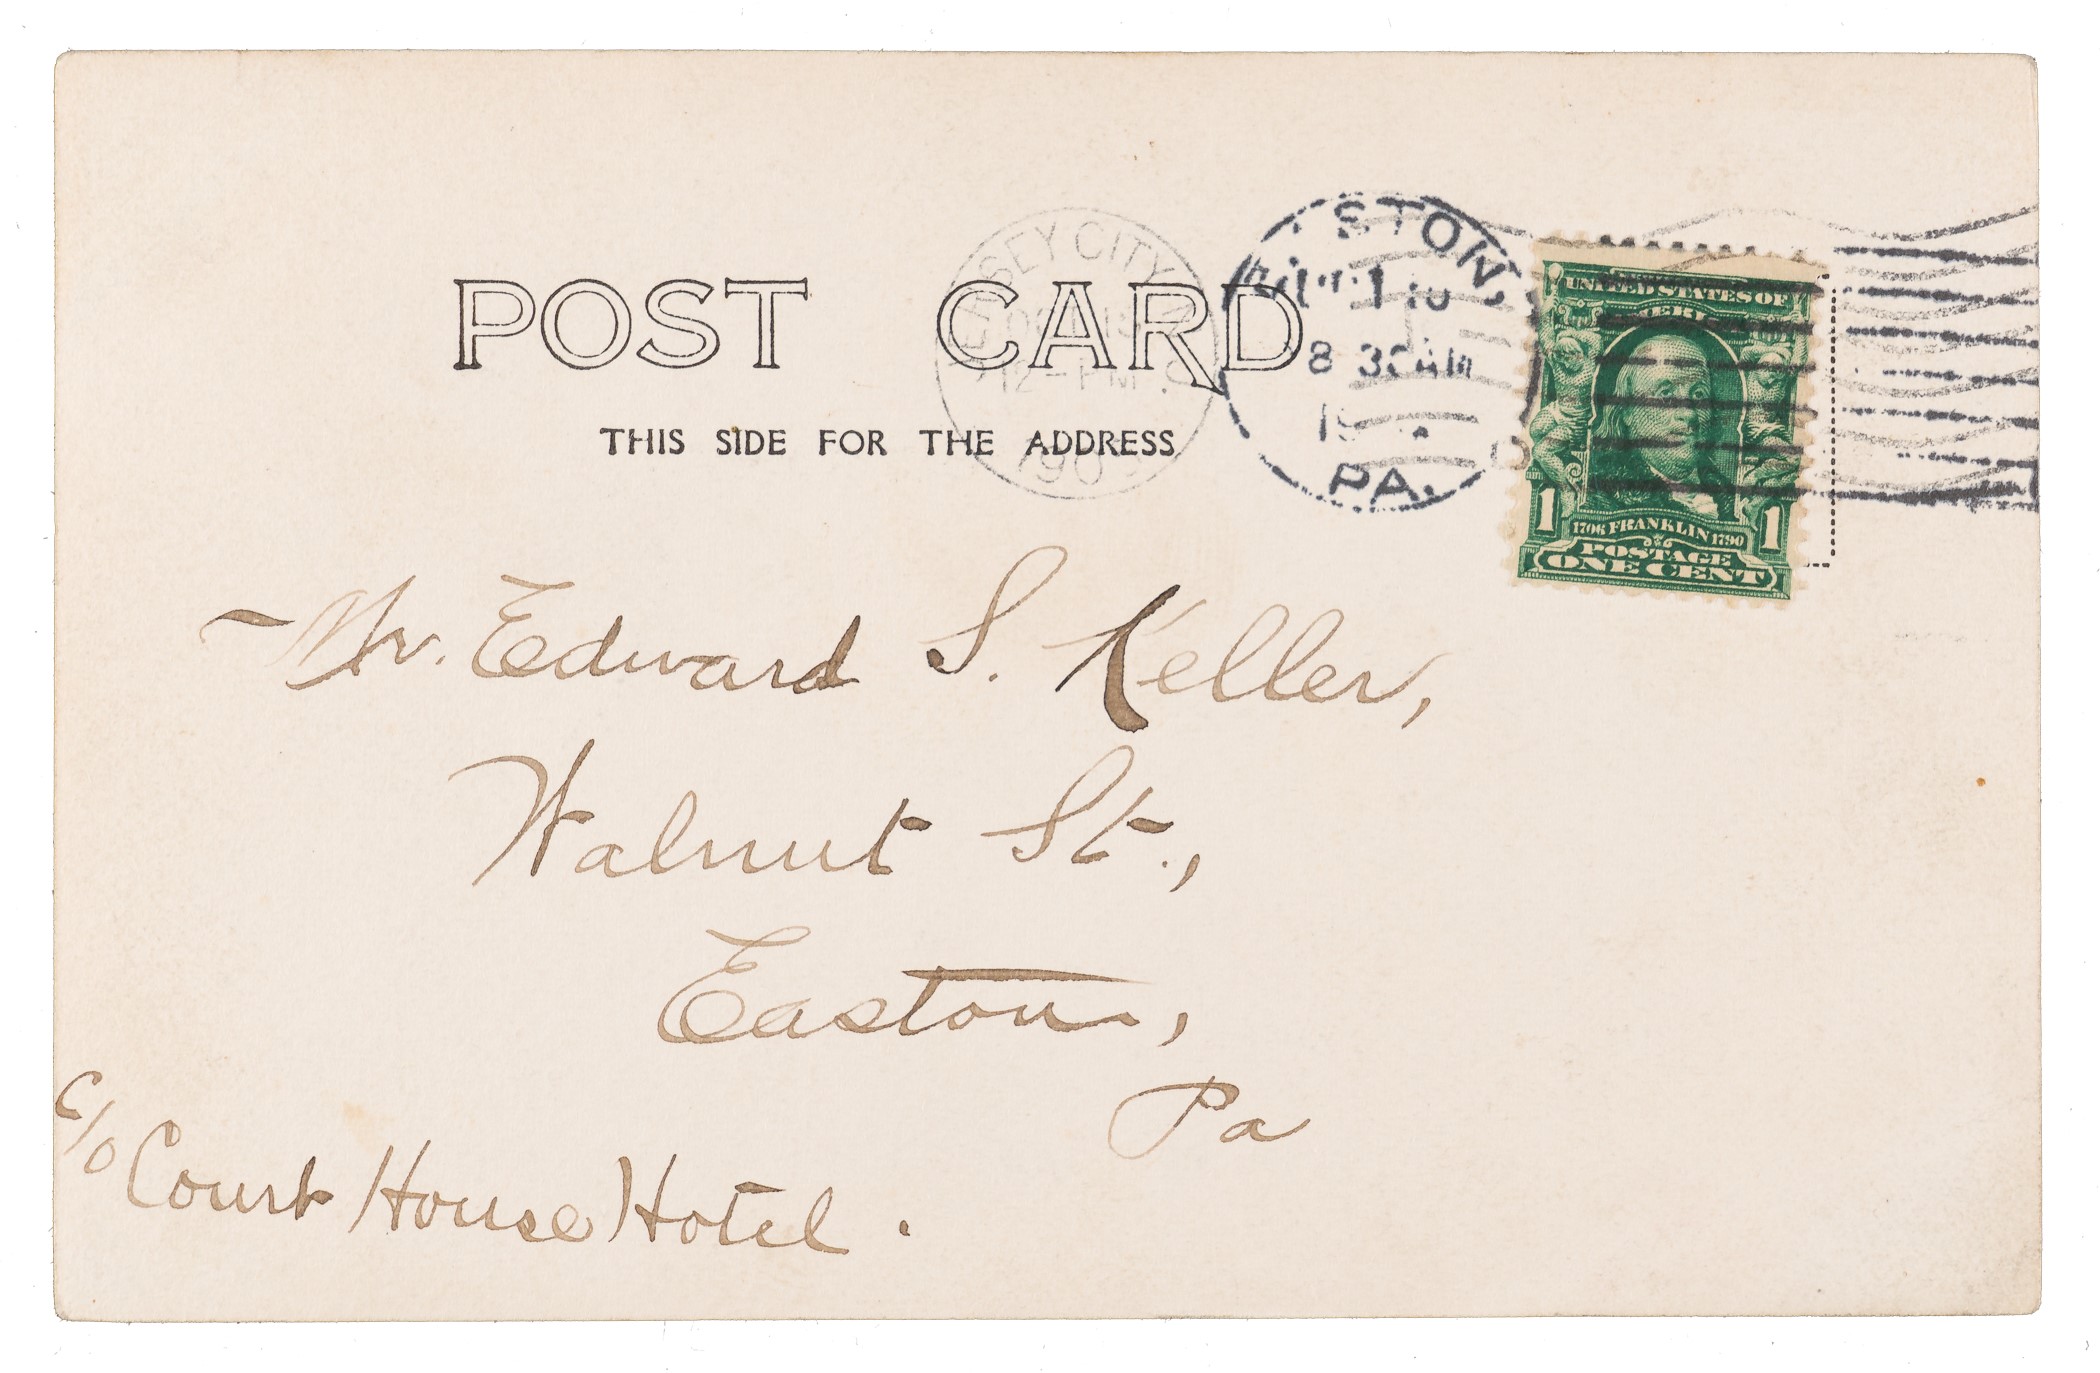 POST CARD
THIS SIDE FOR THE ADDRESS
SEY CITY
12-1 PM
190
STON,
8 30 AM
PA.
UNITED STATES OF
1706 FRANKLIN 1790
1 1
POSTAGE
ONE CENT
Mr. Edward S. Keller,
Walnut St.,
Easton,
Pa
c/o Court House Hotel.